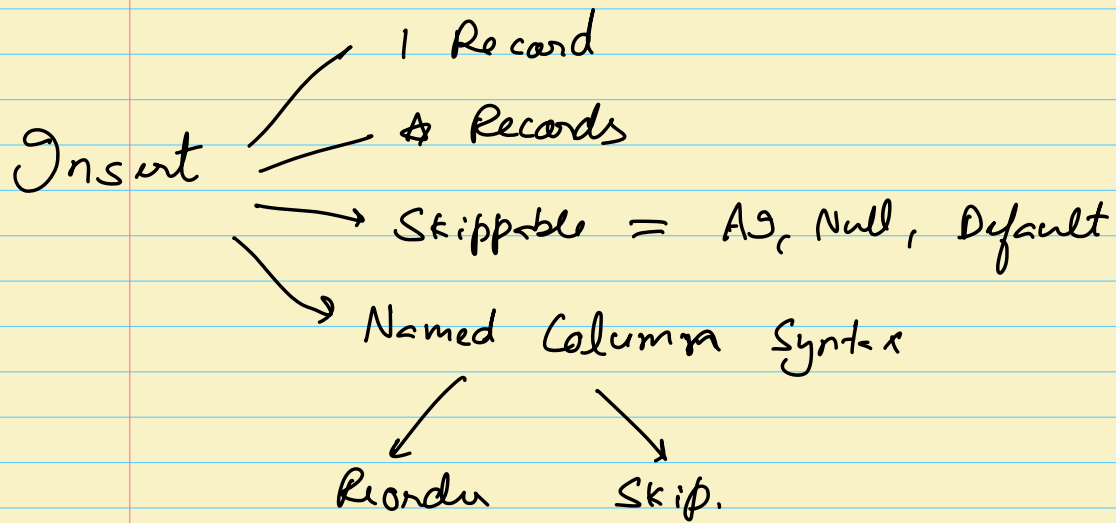 1 Record
* Records
Insert
Skippable = AI, Null, Default
Named Column Syntax
Reorder Skip.